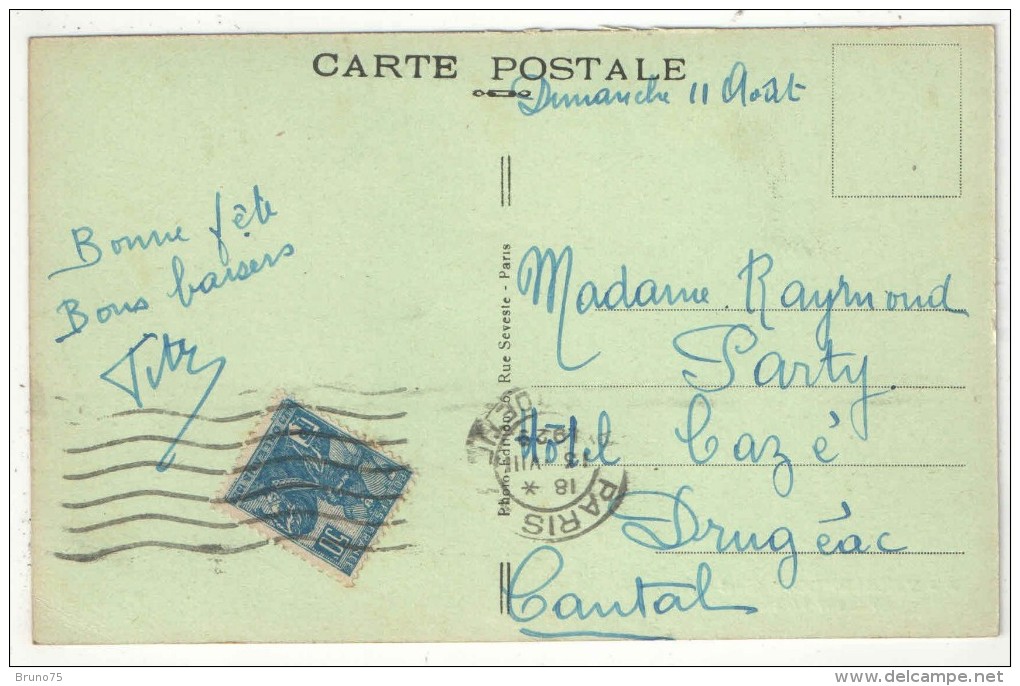 CARTE POSTALE
Dimanche 11 Août
Bonne fête
Bons baisers
Photo-Edition 6, Rue Seveste - Paris
Madame Raymond
Party
Hôtel Cazé
Drugéac
Cantal
PARIS
18 *
13 - VIII
1929
0.50
Bruno75
delcampe.net